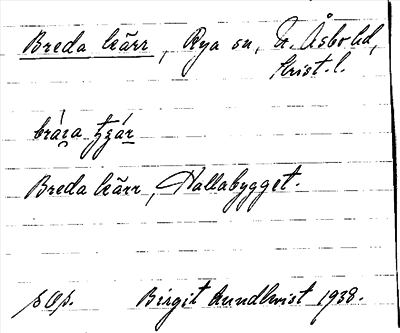 Breda kärr, Rya sn, N. Åsbo hd,
Krist. l.
Breda kärr, Hallabygget.
sOp. Birgit Rundkvist 1938.